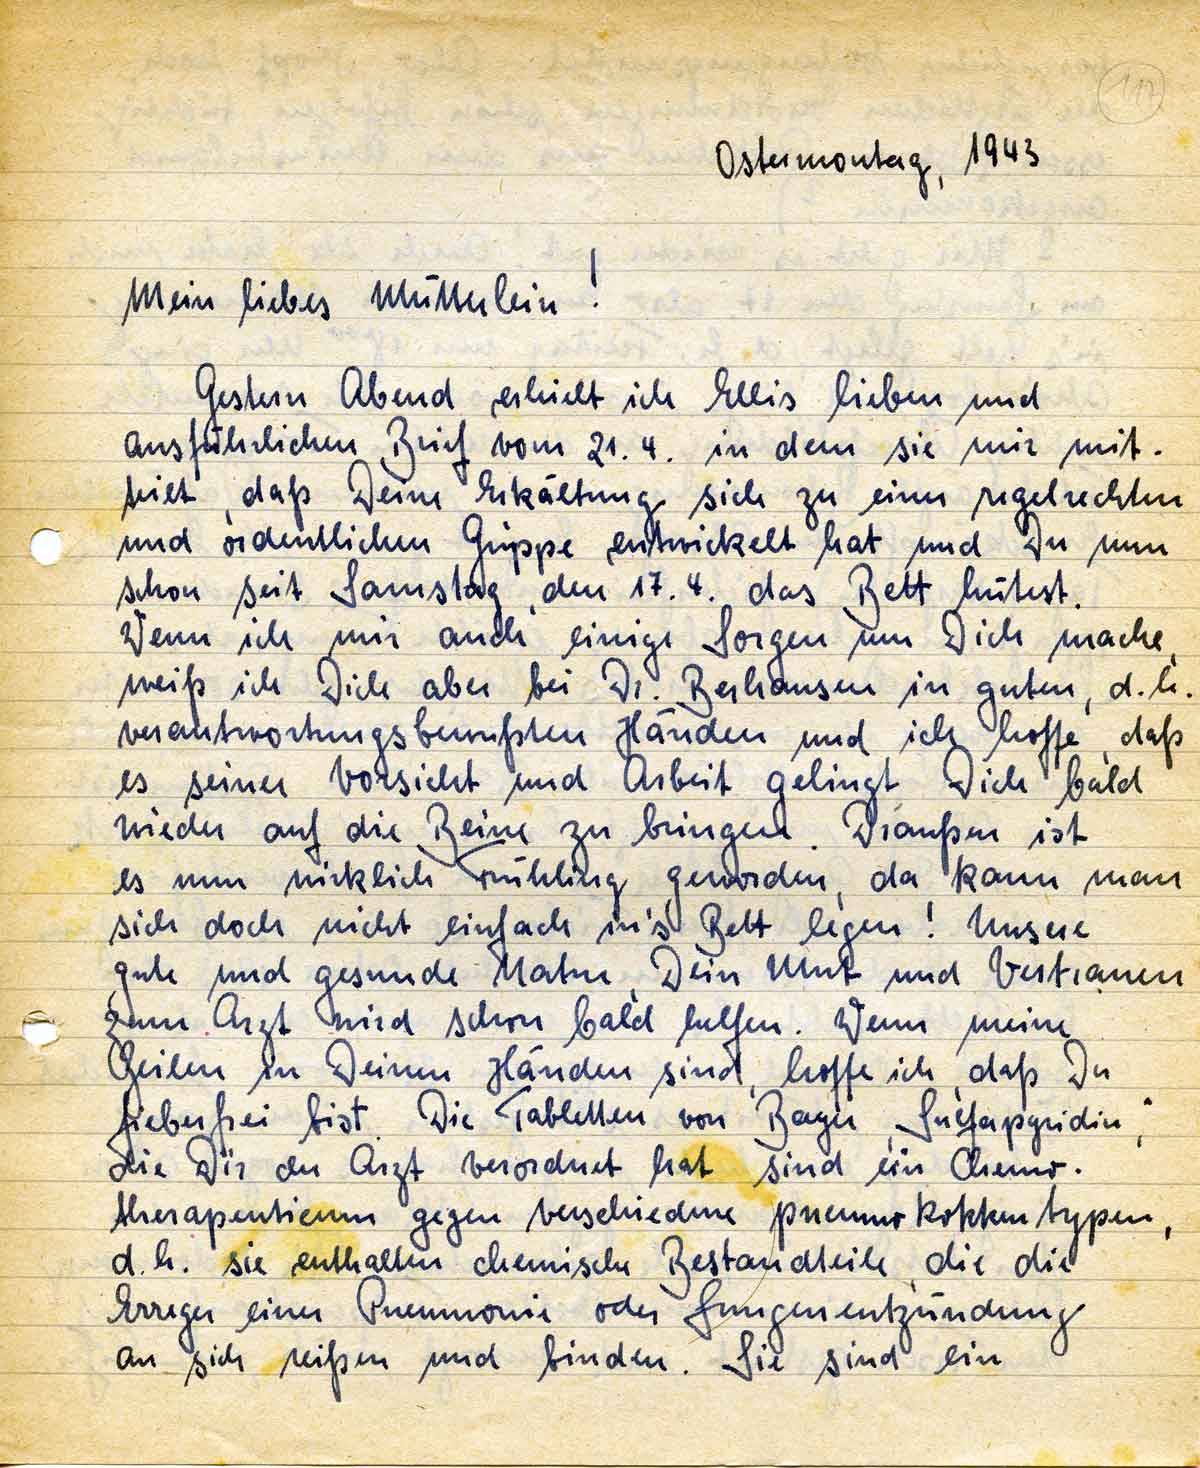 117
Ostermontag, 1943
Mein liebes Mütterlein!
Gestern Abend erhielt ich Ellis lieben und
ausführlichen Brief vom 21.4. in dem sie mir mit-
teilt, daß Deine Erkältung sich zu einer regelrechten
und ordentlichen Grippe entwickelt hat und Du nun
schon seit Samstag, den 17.4. das Bett hütest.
Wenn ich mir auch einige Sorgen um Dich mache,
weiß ich Dich aber bei Dr. Berhausen in guten, d.h.
verantwortungsbewußten Händen und ich hoffe, daß
es seiner Vorsicht und Arbeit gelingt Dich bald
wieder auf die Beine zu bringen. Draußen ist
es nun wirklich Frühling geworden, da kann man
sich doch nicht einfach in's Bett legen! Unsere
gute und gesunde Natur, Dein Mut und Vertrauen
zum Arzt wird schon bald helfen. Wenn meine
Zeilen in Deinen Händen sind, hoffe ich, daß Du
fieberfrei bist. Die Tabletten von Bayer „Sulfapyridin“,
die Dir der Arzt verordnet hat sind ein Chemo-
therapeuticum gegen verschiedene pneumokokkentypen,
d.h. sie enthalten chemische Bestandteile, die die
Erreger einer Pneumonie oder Lungenentzündung
an sich reißen und binden. Sie sind ein